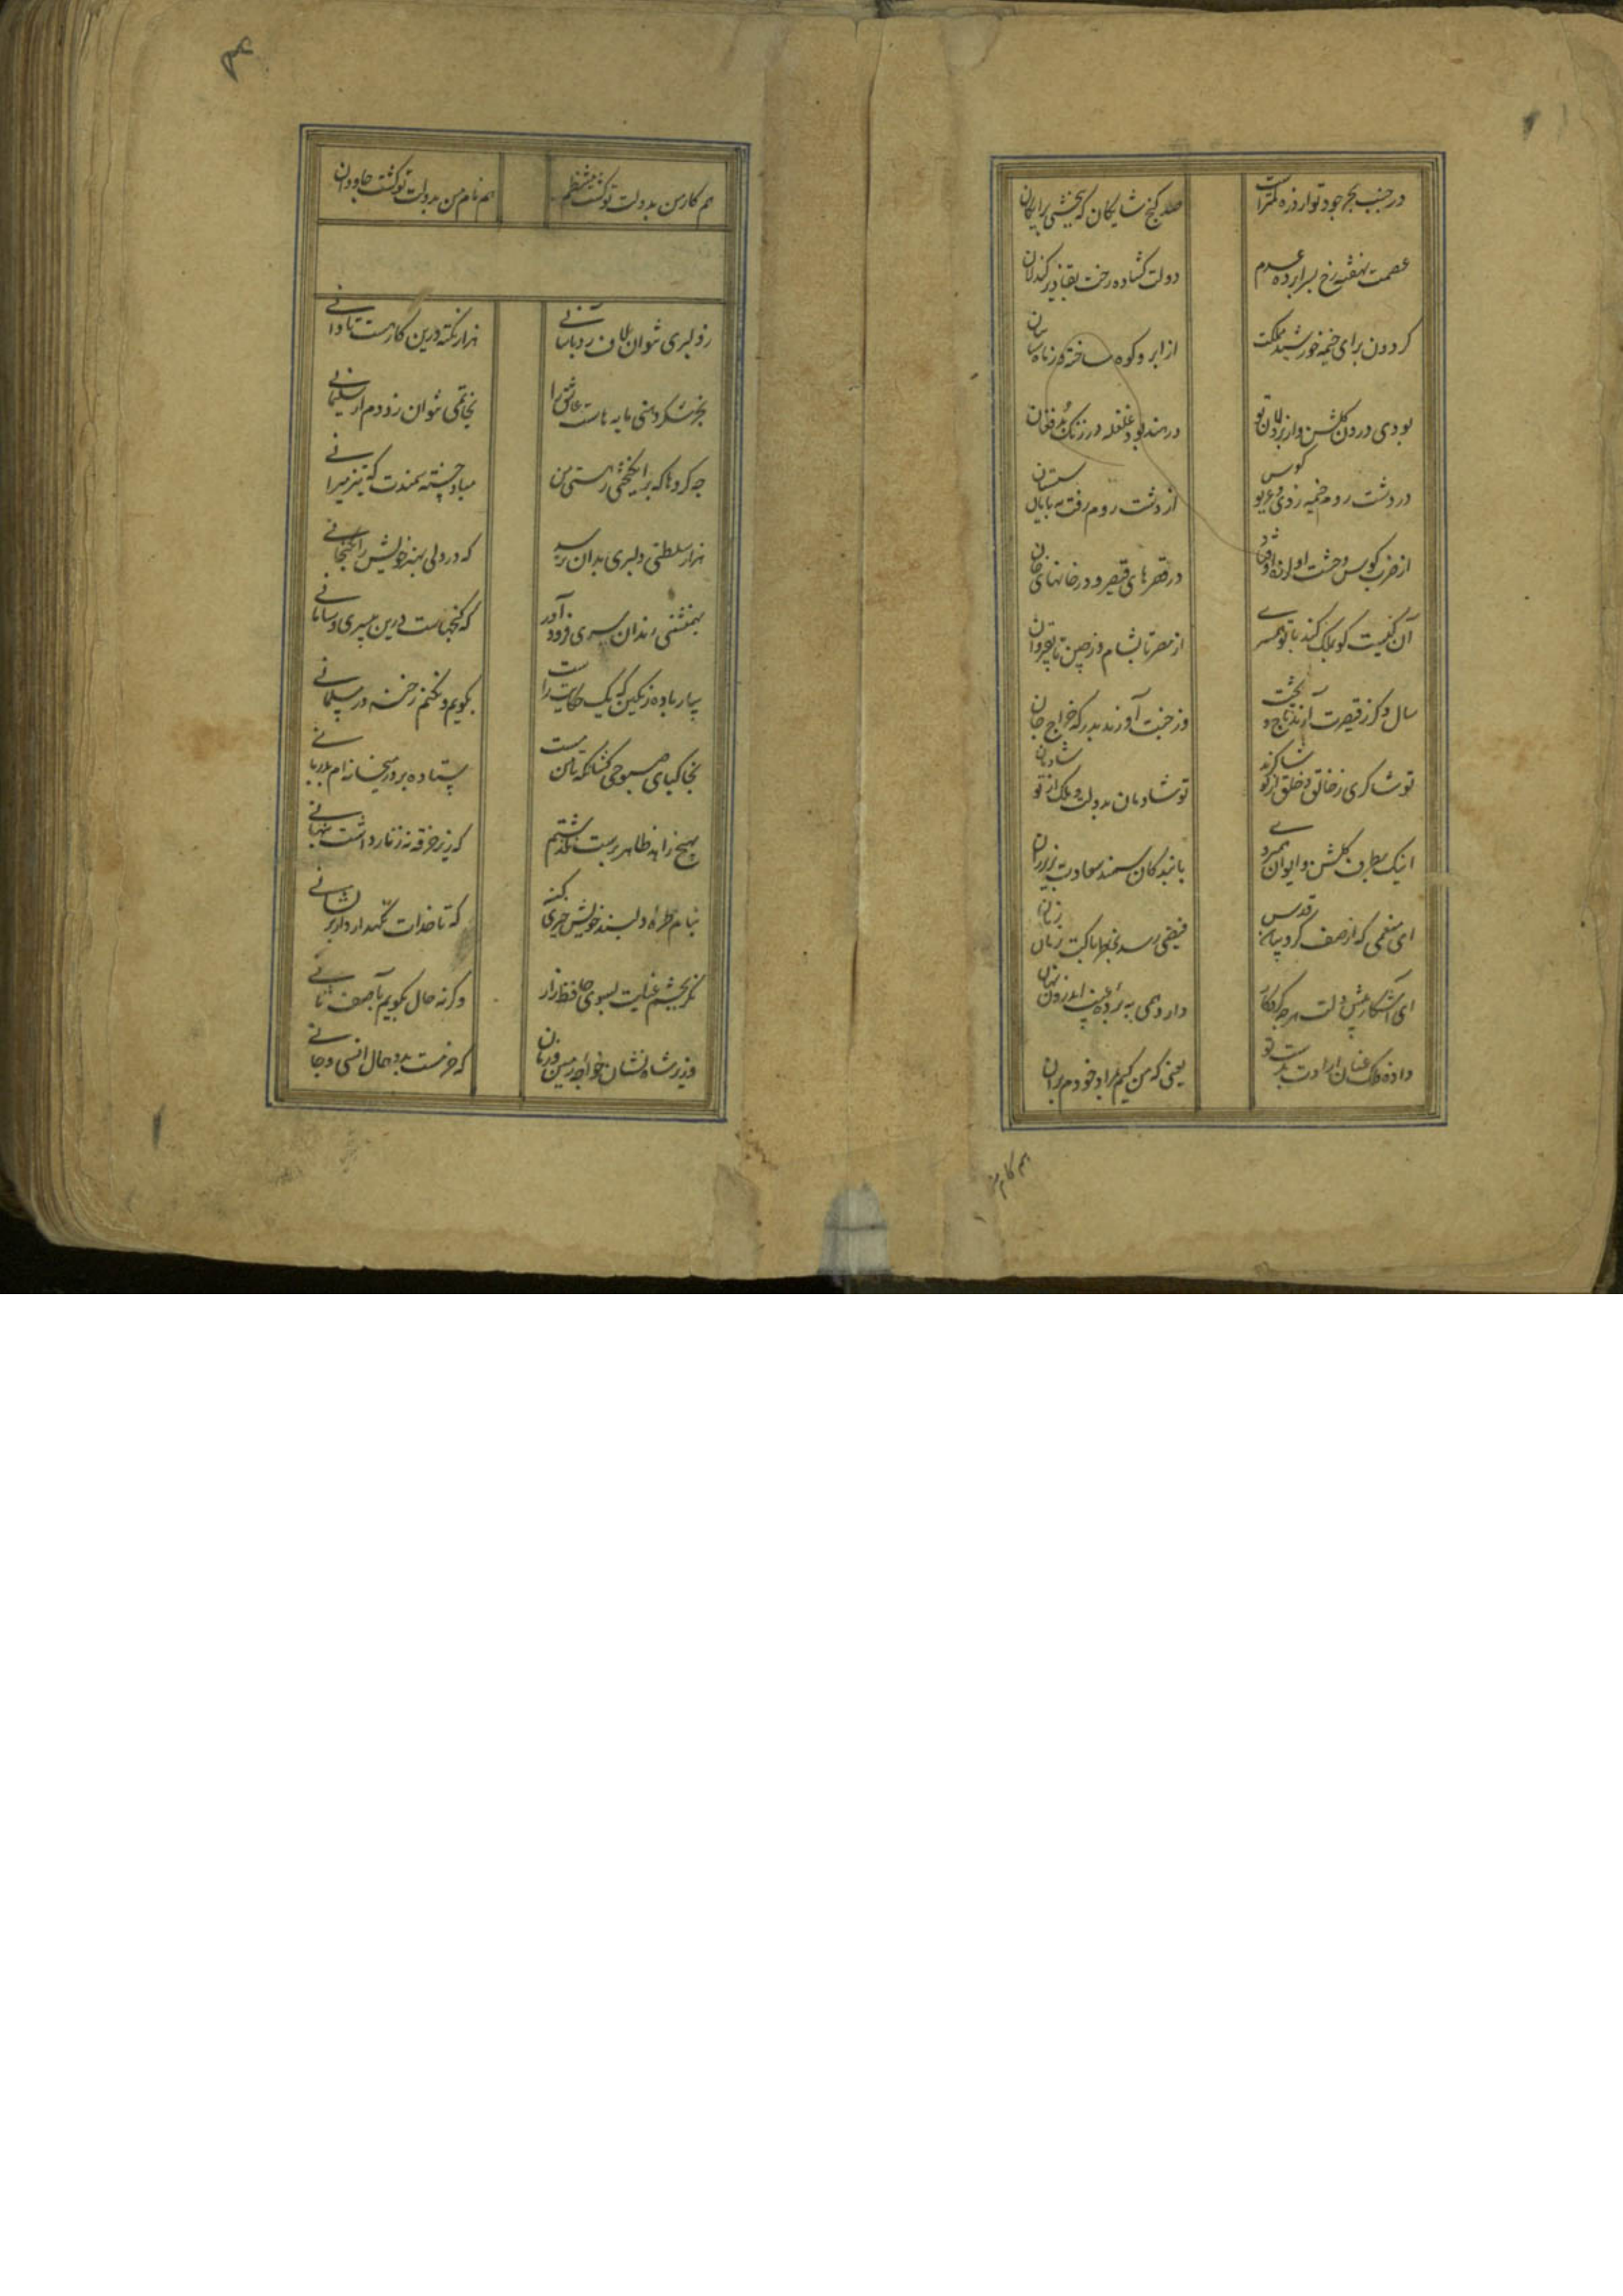 در جنب بحر جود تو از ذره کمتر است
صد گنج شایگان که ببخشی برایگان
عصمت نهفته رخ بسراپرده عدم
دولت گشاده رخت بقا زیر کندلان
گردون برای خیمه خورشید مملکت
از ابر و کوه ساخته
در هند بود غلغله در زنگ بد فغان
در دشت روم خیمه زدی و غریو کوس
از دشت روم رفت به بیابان سیستان
در قصرهای قیصر و در خانهای خان
آن کیست کو بملک کند با تو همسری
از مصر تا بشام و ز چین تا بقیروان
سال دگر ز قیصرت آرند تاج و تخت
وز چینت آورند بدرگه خراج جان
تو شاکری ز خالق و خلق از تو شاکرند
تو شادمان بدولت و ملک از تو شادمان
اینک بطرف گلشن و ایوان همیرود
با بندگان سمند سعادت بزیر ران
ای منعمی که از صف کروبیان قدس
فیضی رسد بخاطر پاکت زمان زمان
ای آشکار پیش دلت هر چه کردگار
دارد همی به پرده غیب اندرون نهان
داده فلک عنان ارادت بدست تو
یعنی که من کیم بمراد خودم بران
هم کام من
هم کار من بدولت تو گشت منتظم
هم نام من بدولت تو گشت جاودان
ز دلبری نتوان لاف زد بآسانی
هزار نکته درین کار هست تا دانی
بجز شکردهنی مایه هاست عاشق را
بخاتمی نتوان زد دم از سلیمانی
چه گردها که برانگیختی ز هستی من
مباد خسته سمندت که تیز میرانی
هزار سلطنتی دلبری بدان نرسد
که در دلی بهنر خویش را بگنجانی
بهمنشینی رندان سری فرود آور
که گنجهاست درین بیسری و سامانی
بیار باده رنگین که یک حکایت راست
بگویم و نکنم رخنه در مسلمانی
بخاک پای صبوحی کشان که تا من مست
ستاده بر در میخانه ام بدربانی
بهیچ زاهد ظاهرپرست نگذشتم
که زیر خرقه نه زنار داشت پنهانی
بنام طره دلبند خویش خیری کن
که تا خدات نگهدارد از پریشانی
مگیر چشم عنایت بسوی حافظ زار
وگرنه حال بگویم بآصف ثانی
وزیر شاه نشان خواجه زمین و زمان
که خرمست بدو حال انسی و جانی